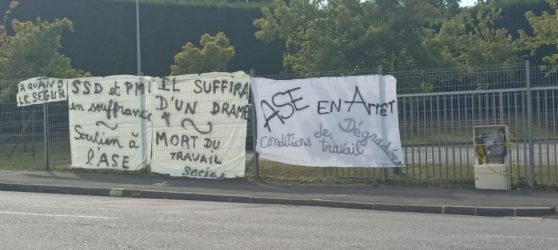 A QUAND
LE SEGUR
SSD et PMI
en souffrance
Soutien à
l'ASE
IL SUFFIRA
D'UN DRAME
MORT DU
TRAVAIL
Social
ASE EN ArrêT
Conditions de Dégradées
travail